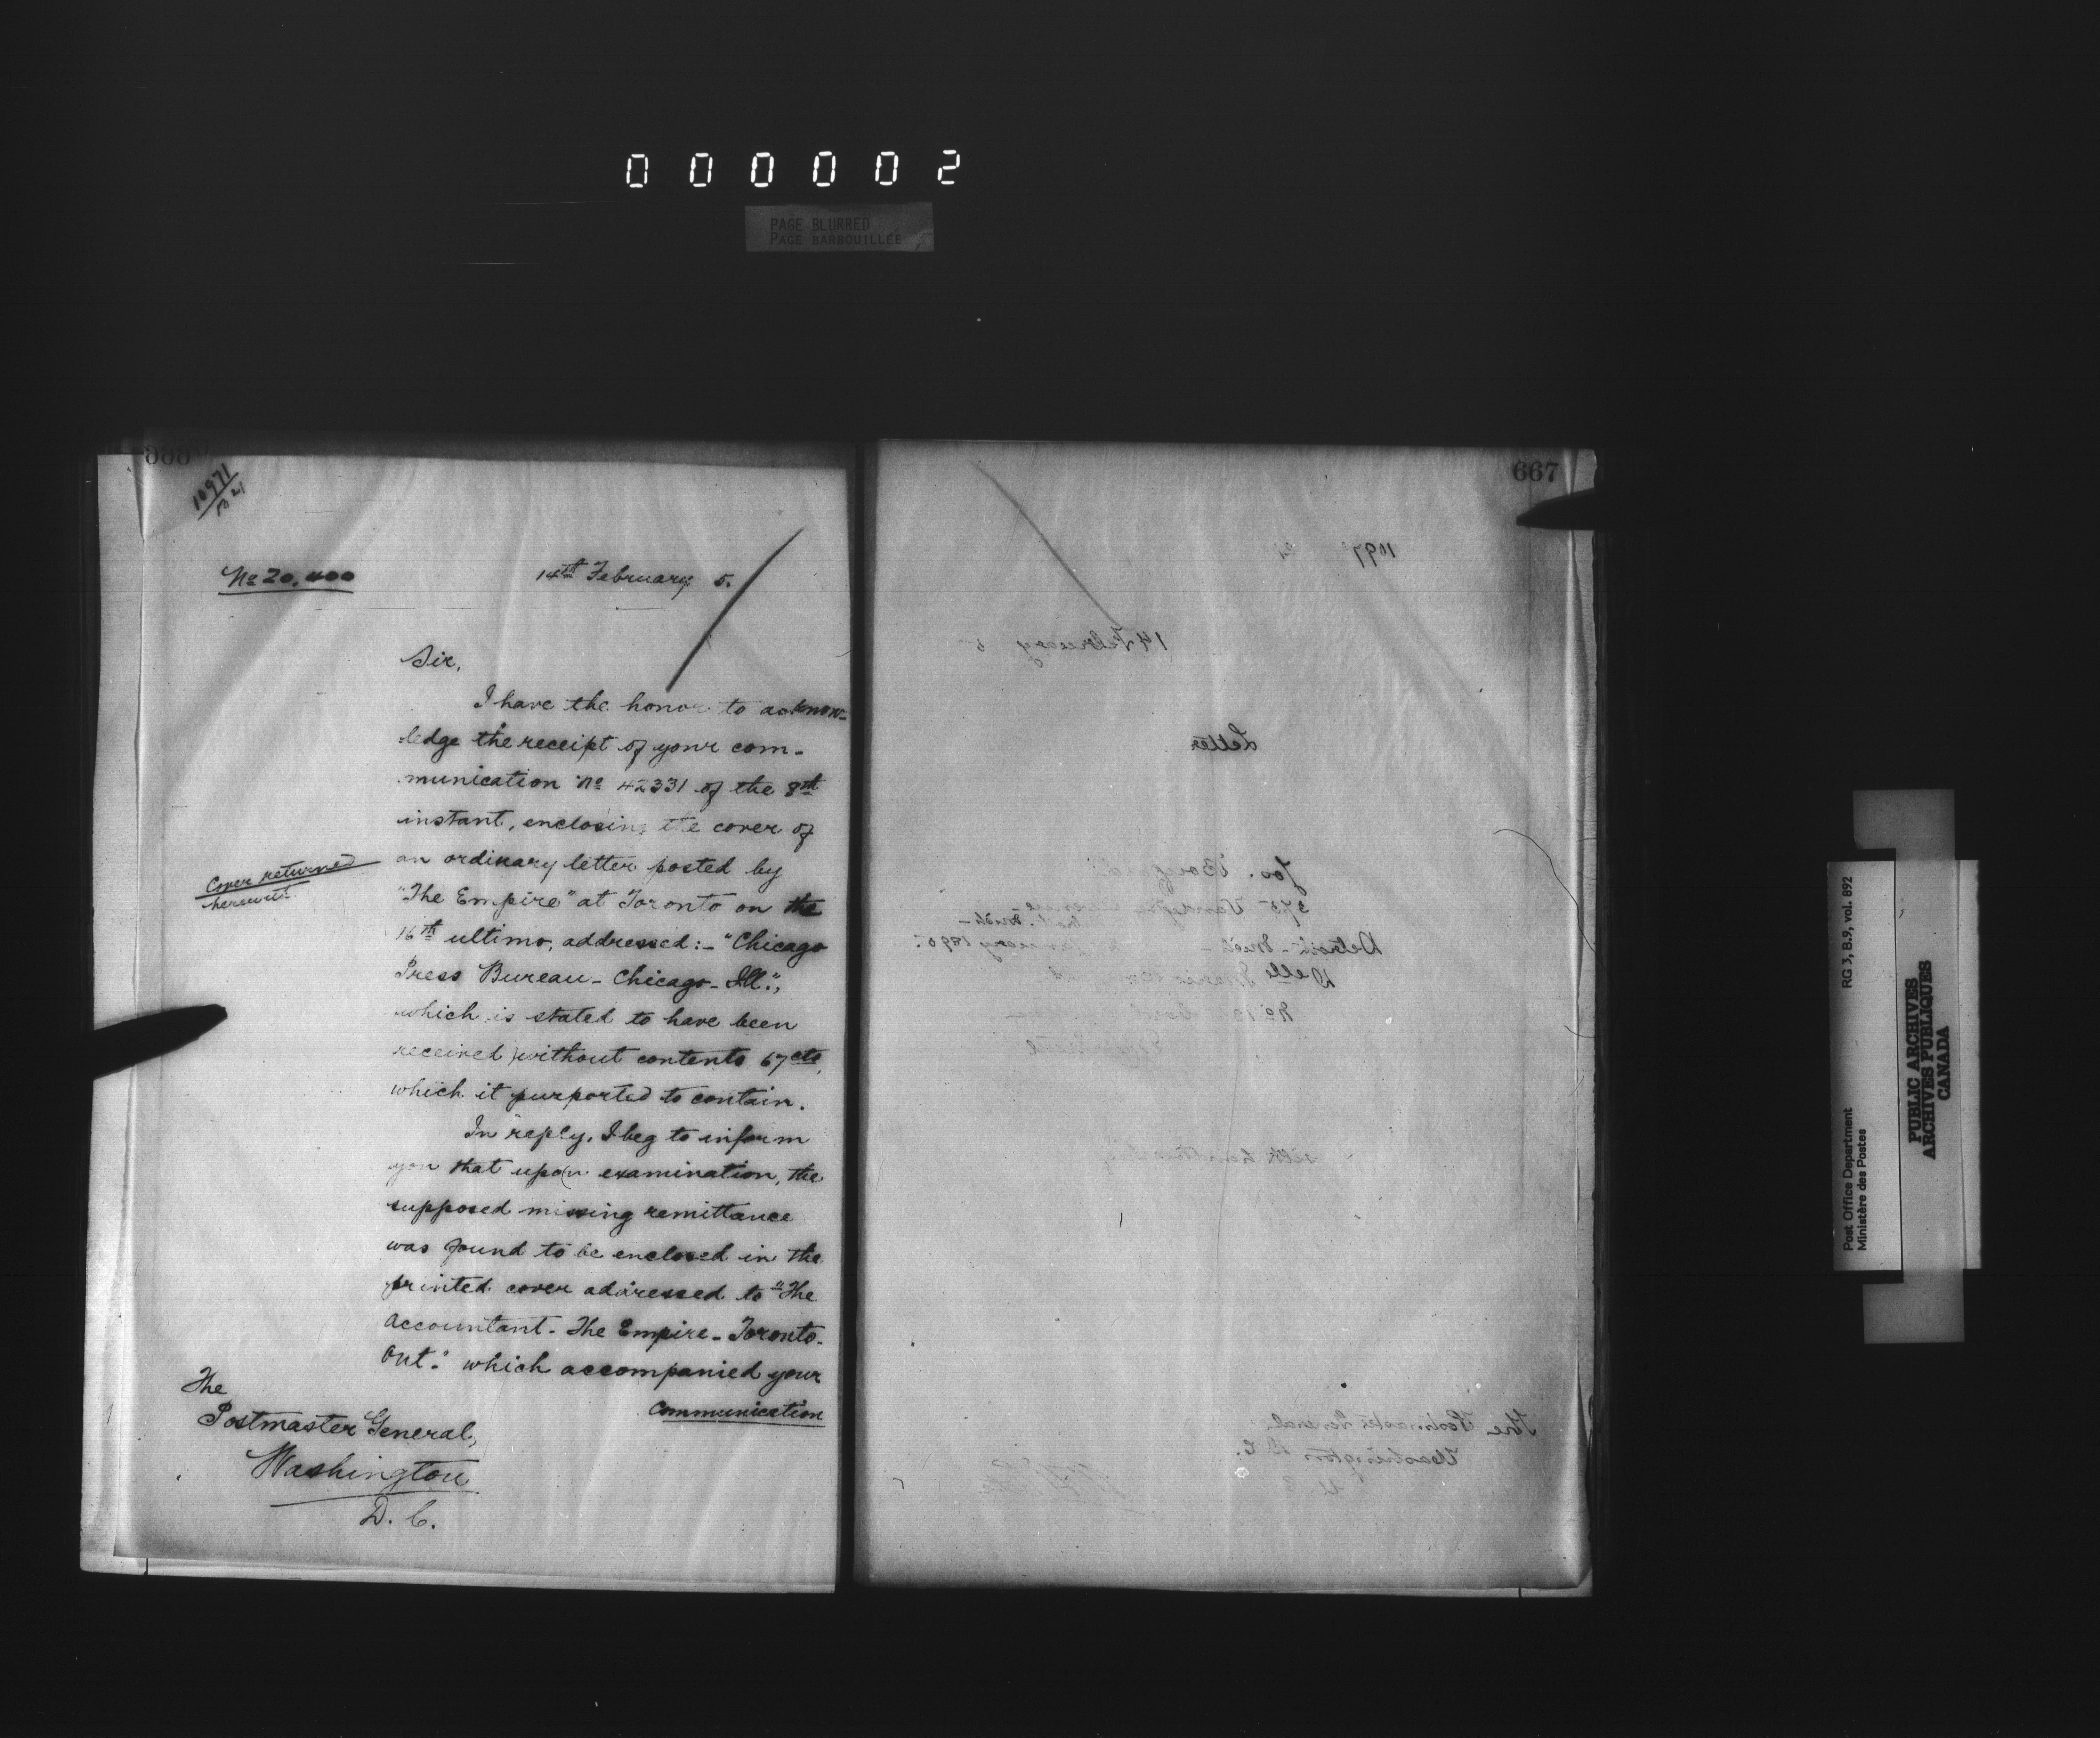 000002
PAGE BLURRED
PAGE BARBOUILLÉE
10971
No 20,400
14th February 5.
Sir,
I have the honor to acknow-
ledge the receipt of your com-
munication No 42331 of the 8th
instant, enclosing the cover of
an ordinary letter posted by
"The Empire" at Toronto on the
16th ultimo, addressed:- "Chicago
Press Bureau - Chicago - Ill.",
which is stated to have been
received without contents 67 cts,
which it purported to contain.
In reply, I beg to inform
you that upon examination, the
supposed missing remittance
was found to be enclosed in the
printed cover addressed to "The
Accountant - The Empire - Toronto -
Ont." which accompanied your
communication
Cover returned
herewith
The
Postmaster General,
Washington
D. C.
667
14 February 5
Letter
Jos.
375
Detroit - Mich -
Delle
No
The Postmaster General
Washington D. C.
Post Office Department
Ministère des Postes
RG 3, B.9, vol. 892
PUBLIC ARCHIVES
ARCHIVES PUBLIQUES
CANADA